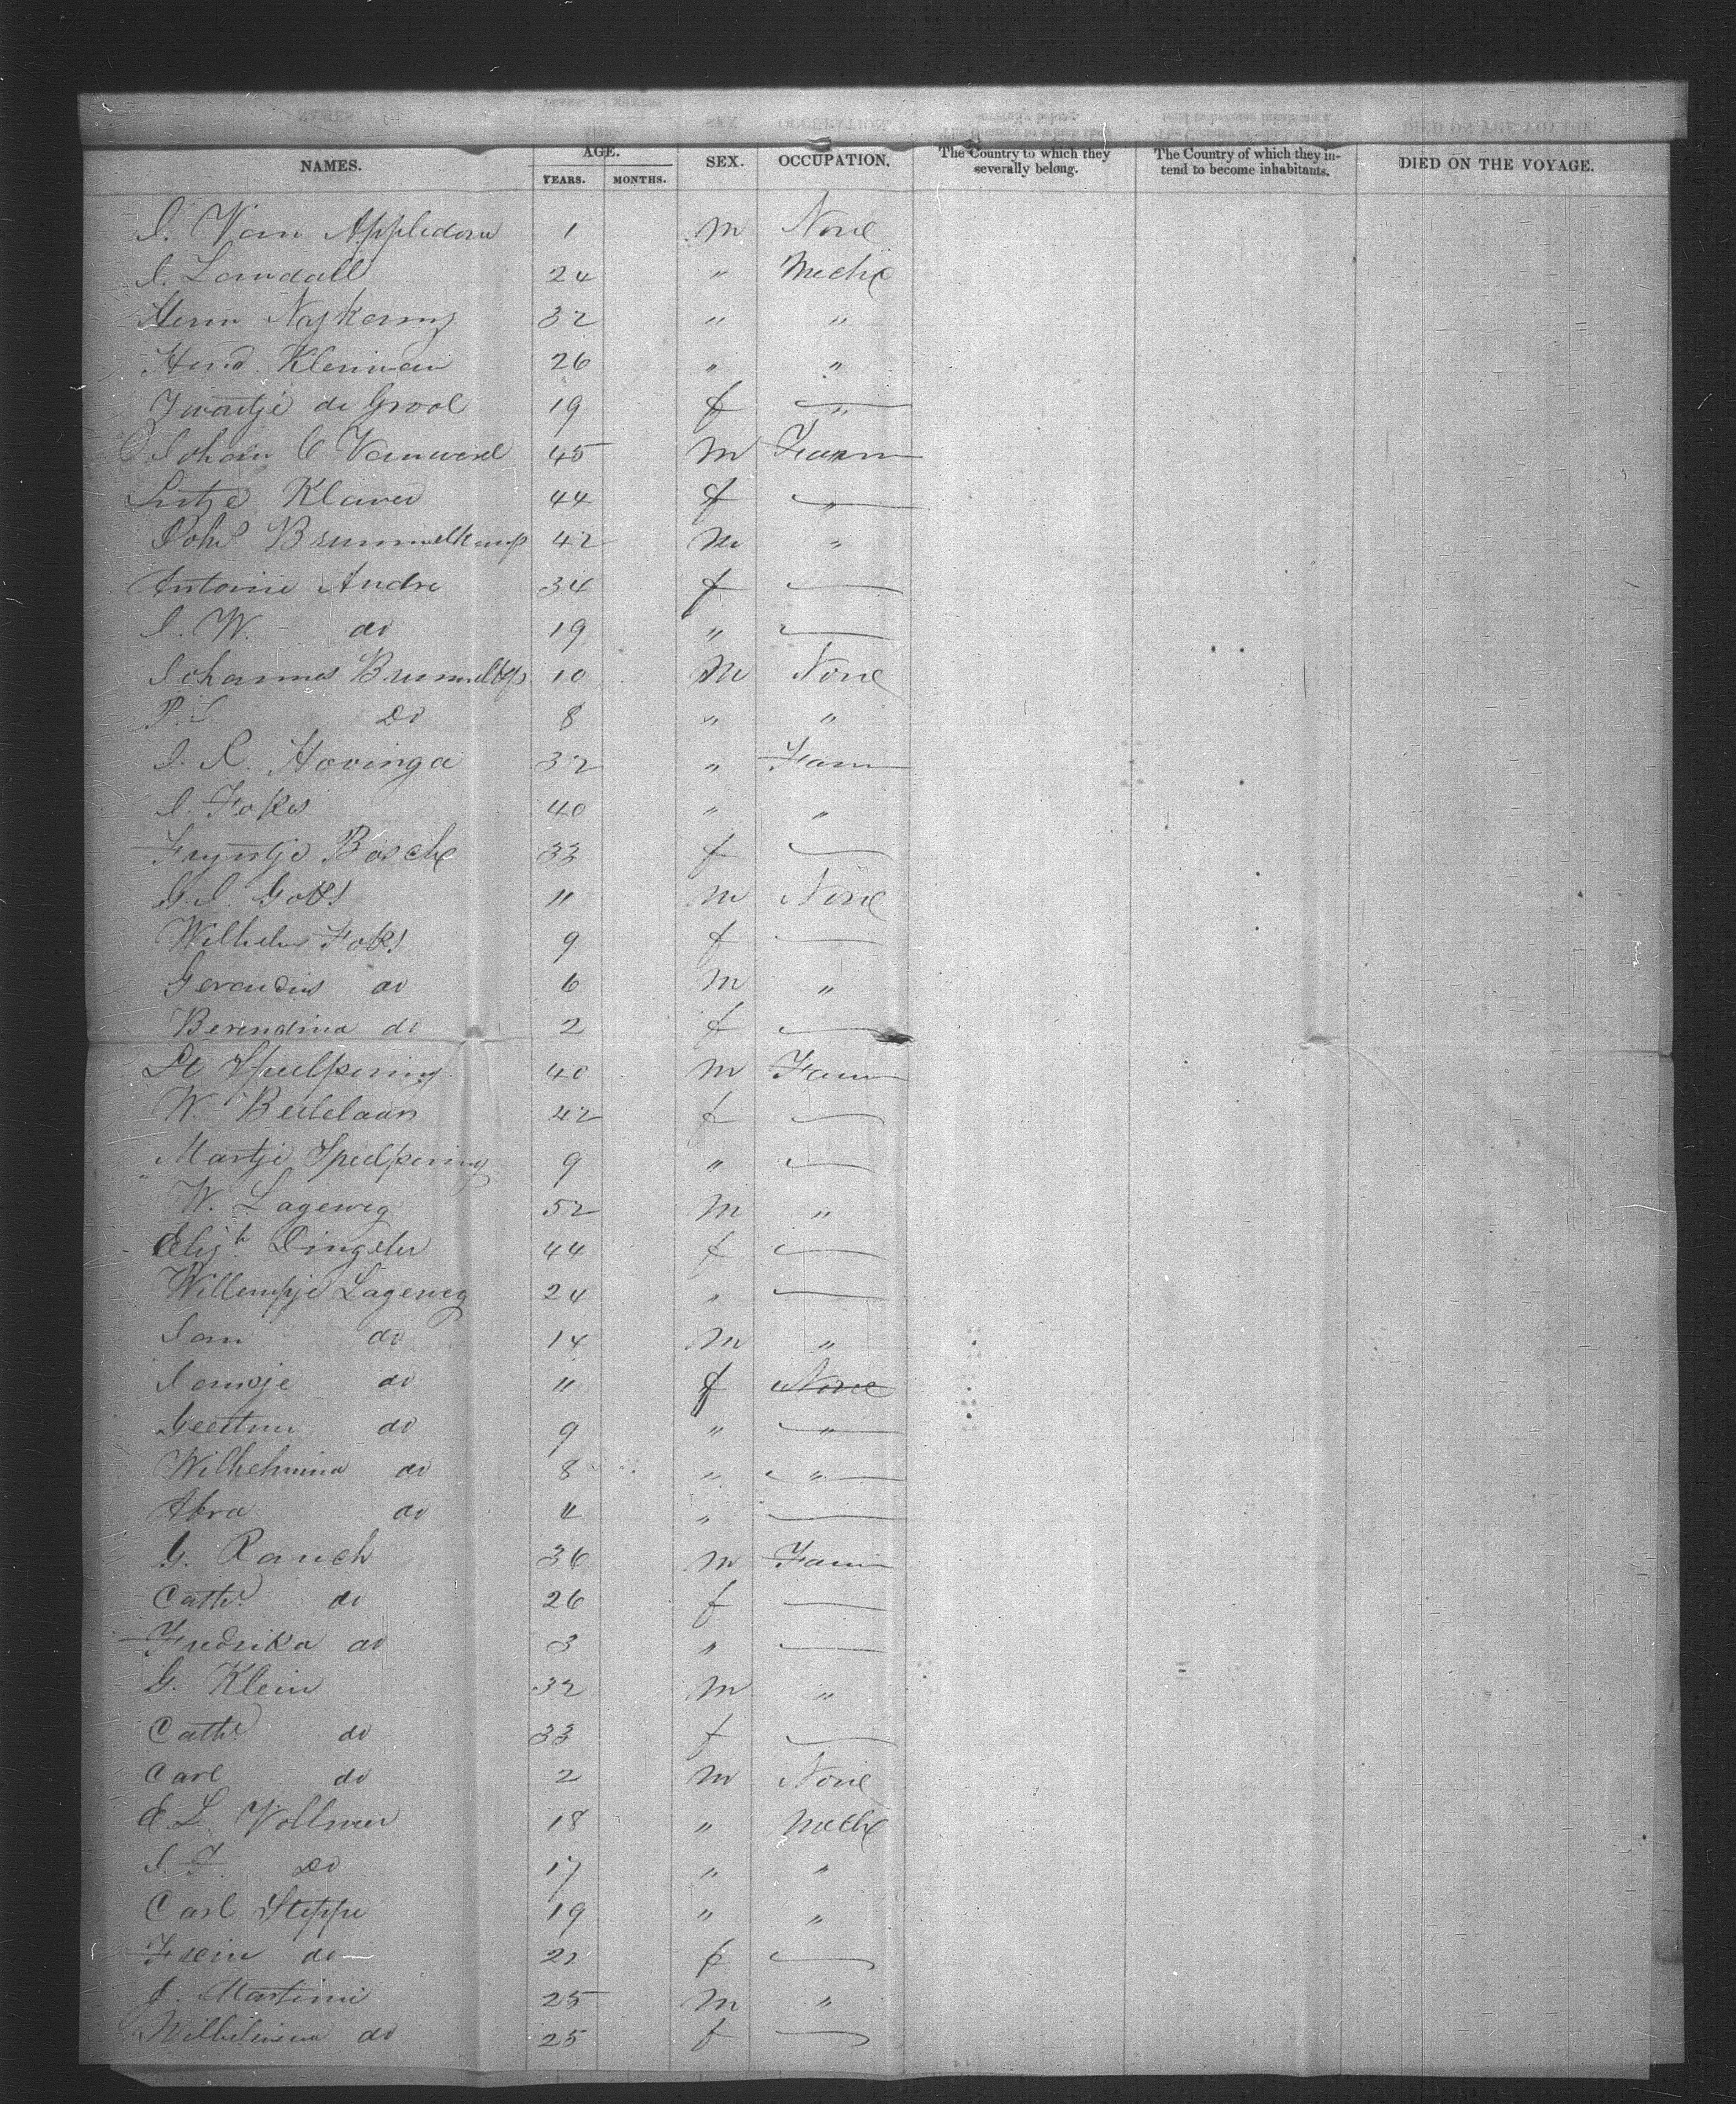 NAMES. AGE. YEARS. MONTHS. SEX. OCCUPATION. The Country to which they severally belong. The Country of which they in-tend to become inhabitants. DIED ON THE VOYAGE.
I. Van Appledorn 1 m None
I. Lamdall 24 " Mech
Herm Nykerung 32 " "
Hend. Klenman 26 " "
Zwartje de Groot 19 f — "
Johan C Vanwerd 45 m Farm
Lutze Klaver 44 f — "
Joh Brummelkamp 42 m "
Antonie Andre 34 f —
I. W. do 19 " —
Johannes Brummelkp 10 m None
P. I Do 8 " "
I. R. Hovinga 32 " Farm
I. Fokes 40 " "
Fryntje Bosch 33 f —
G. I. Goks 11 m None
Wilhelm Foks 9 f —
Gerardus do 6 m "
Berendina do 2 f —
Spielpening 40 m Farm
W. Beitelaan 42 f —
Martje Spielpening 9 " —
W. Lageweg 52 m "
Eligh Dingeler 44 f —
Willempje Lageweg 24 " —
Jan do 14 m "
Jannje do 11 f None
Geertrui do 9 " — "
Wilhelmina do 8 " — "
Abra do 4 " —
G. Rauch 36 m Farm
Cath. do 26 f —
Fredrika do 3 " —
G. Klein 32 m "
Cath. do 33 f —
Carl do 2 m None
E. L. Vollmer 18 " Mech
I. F. Do 17 " "
Carl Steppe 19 " "
do 22 f —
J. Martini 25 m "
Wilhelmina do 25 f —